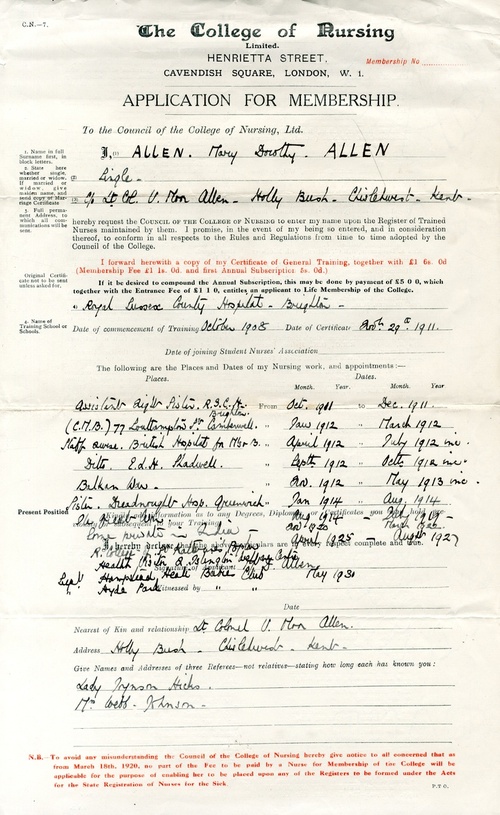 C.N.—7.
The College of Nursing
Limited.
HENRIETTA STREET,
Membership No
CAVENDISH SQUARE, LONDON, W. 1.
APPLICATION FOR MEMBERSHIP.
To the Council of the College of Nursing, Ltd.
1. Name in full Surname first, in block letters.
I, (1) ALLEN. Mary Dorothy. ALLEN
2. State here whether single, married or widow. If married or widow, give maiden name, and send copy of Marriage Certificate
(2) Single
3. Full permanent Address, to which all communications will be sent.
(3) c/o Lt Col. V. Moor Allen. Holly Bush - Chislehurst - Kent -
hereby request the COUNCIL OF THE COLLEGE OF NURSING to enter my name upon the Register of Trained
Nurses maintained by them. I promise, in the event of my being so entered, and in consideration
thereof, to conform in all respects to the Rules and Regulations from time to time adopted by the
Council of the College.
I forward herewith a copy of my Certificate of General Training, together with £1 6s. 0d
(Membership Fee £1 1s. 0d. and first Annual Subscription 5s. 0d.)
Original Certificate not to be sent unless asked for.
If it be desired to compound the Annual Subscription, this may be done by payment of £5 0 0, which
together with the Entrance Fee of £1 1 0, entitles an applicant to Life Membership of the College.
4. Name of Training School or Schools.
(4) Royal Sussex County Hospital - Brighton -
Date of commencement of Training October 1908 Date of Certificate Nov. 29th 1911.
Date of joining Student Nurses' Association
The following are the Places and Dates of my Nursing work, and appointments:—
Places. Dates.
Month. Year. Month. Year
Assistant Night Sister. R.S.C.H. Brighton From Oct. 1911 to Dec. 1911
(C.M.B.) 77 Southampton St. Camberwell. " Jan 1912 " March 1912
Staff nurse. British Hospital for M & B. " April 1912 " July 1912 inc.
Ditto. E.L.H. Shadwell. " Sept 1912 " Oct 1912 inc.
" Nov. 1912 " May 1913 inc.
Present Position
Sister. Dreadnought Hosp. Greenwich " Jan 1914 " Aug. 1914
Aug 1914
April 1925 - August 1927
Some private in India
Health Sister
Hampstead Heath Babies Club May 1930
Hyde Park " "
Witnessed by
Date
Nearest of Kin and relationship Lt Colonel V. Moor Allen.
Address Holly Bush - Chislehurst - Kent -
Give Names and Addresses of three Referees—not relatives—stating how long each has known you:
Lady Joynson Hicks.
Mrs Webb - Johnson -
N.B.—To avoid any misunderstanding the Council of the College of Nursing hereby give notice to all concerned that as
from March 18th, 1920, no part of the Fee to be paid by a Nurse for Membership of the College will be
applicable for the purpose of enabling her to be placed upon any of the Registers to be formed under the Acts
for the State Registration of Nurses for the Sick
P.T.O.